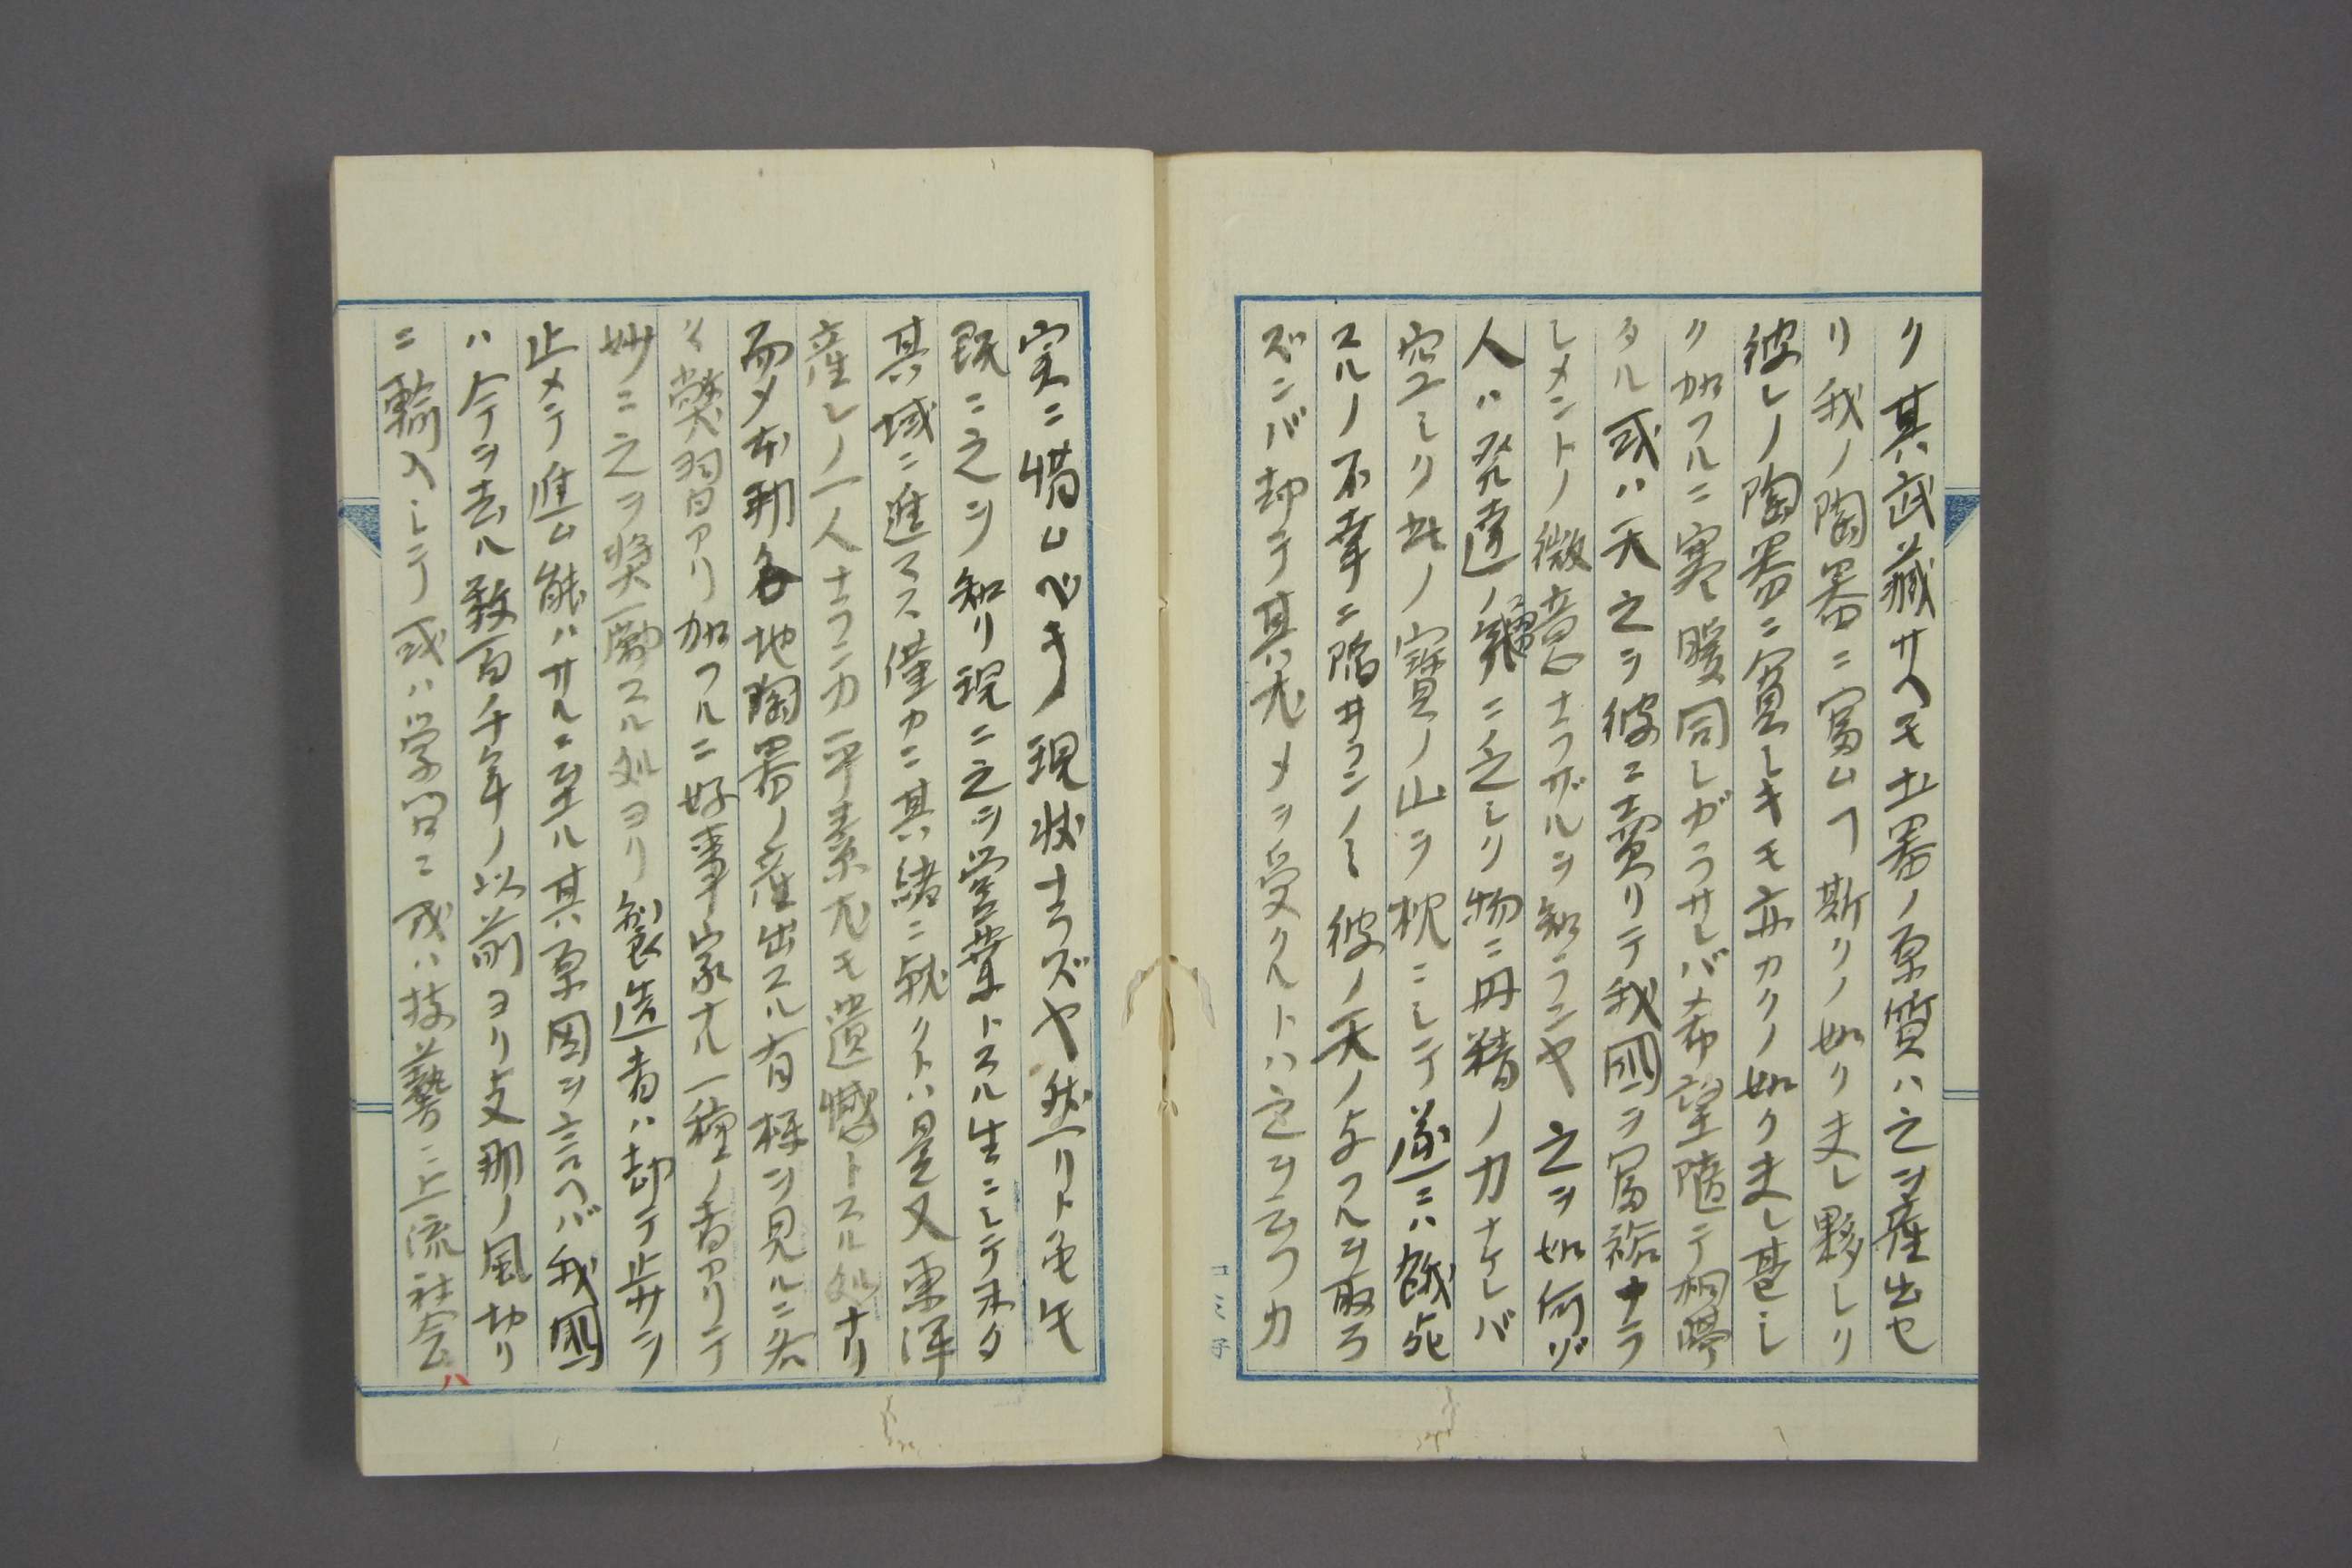 リ其武藏サヘモ土器ノ原質ハ之ヲ産出セ
リ我ノ陶器ニ富ムヿ斯クノ如ク夫レ夥シリ
彼レノ陶器ニ貧シキモ亦カクノ如ク夫レ甚シ
ク加フルニ寒暖同シガラサレバ希望隨テ相
タル或ハ天之ヲ彼ニ賣リテ我國ヲ富裕ナラ
シメントノ微意ナラザルヲ知ランヤ之ヲ如何ゾ
人ハ発達ノ機ニ乏シク物ニ丹精ノ力ナケレバ
空シク此ノ寶ノ山ヲ枕ニシテ遂ニハ餓死
スルノ不幸ニ陷ヰランノミ彼ノ天ノ与フルヲ取ラ
ズンバ却テ其尤メヲ受クルトハ之ヲ云フカ
実ニ惜ムベキノ現状ナラズヤ然リト虽モ
既ニ之ヲ知リ現ニ之ヲ営業トスル生ニシテ未タ
其域ニ進マス僅カニ其緒ニ就クトハ是又東洋
産レノ一人ナランカ平素尤モ遺憾トスル処ナリ
而メ本朝各地陶器ノ産出スル有様ヲ見ルニ各
々弊習アリ加フルニ好事家ナル一種ノ者アリテ
妙ニ之ヲ奨勵スル処ヨリ製造者ハ却テ歩サヲ
止メテ進ム能ハサルニ至ル其原因ヲ言ヘバ我國
ハ今ヲ去ル数百千年ノ以前ヨリ支那ノ風切リ
ニ輸入シテ或ハ学問ニ或ハ技藝ニ上流社会ハ